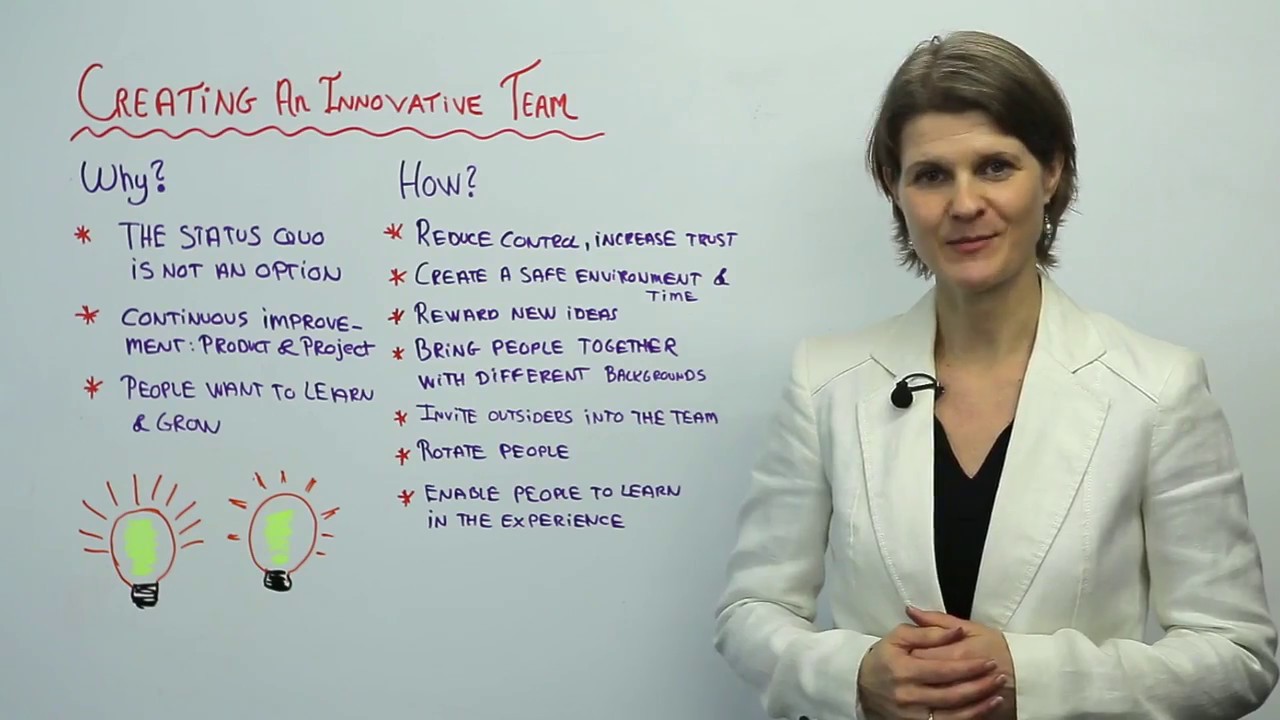 CREATING AN INNOVATIVE TEAM
Why?
* THE STATUS QUO
IS NOT AN OPTION
* CONTINUOUS IMPROVE-
MENT: PRODUCT & PROJECT
* PEOPLE WANT TO LEARN
& GROW
How?
* REDUCE CONTROL, INCREASE TRUST
* CREATE A SAFE ENVIRONMENT &
TIME
* REWARD NEW IDEAS
* BRING PEOPLE TOGETHER
WITH DIFFERENT BACKGROUNDS
* INVITE OUTSIDERS INTO THE TEAM
* ROTATE PEOPLE
* ENABLE PEOPLE TO LEARN
IN THE EXPERIENCE